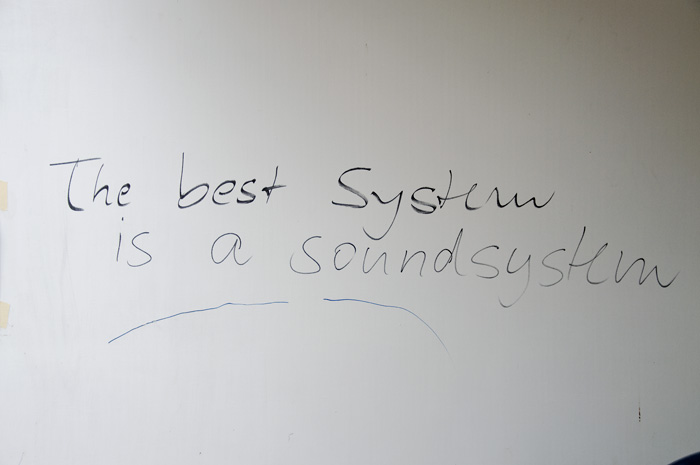 The best System
is a soundsystem